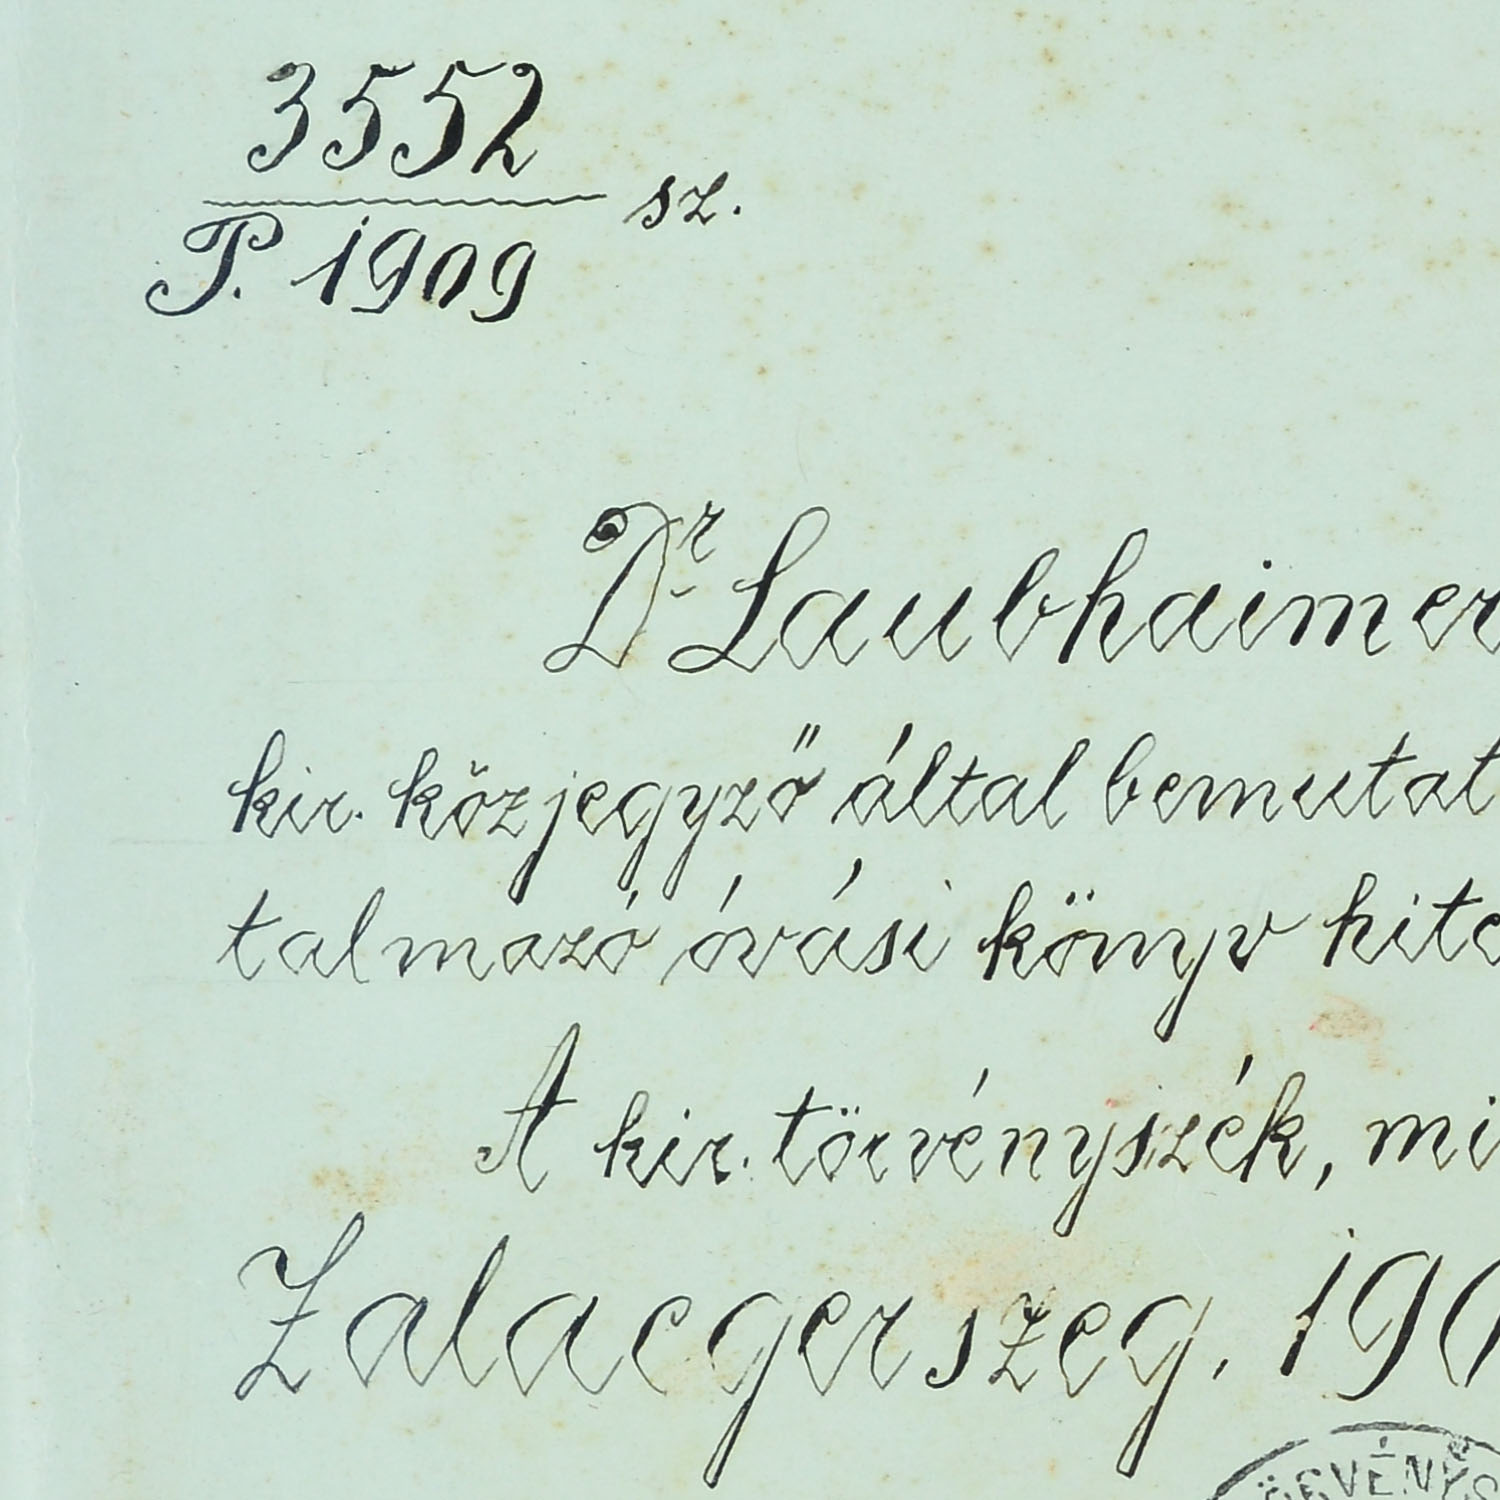 3552
sz.
P. 1909
Dr. Laubhaimer
kir. közjegyző által bemutat
talmazó óvási könyv hite
A kir. törvényszék, mi
Zalaegerszeg, 190